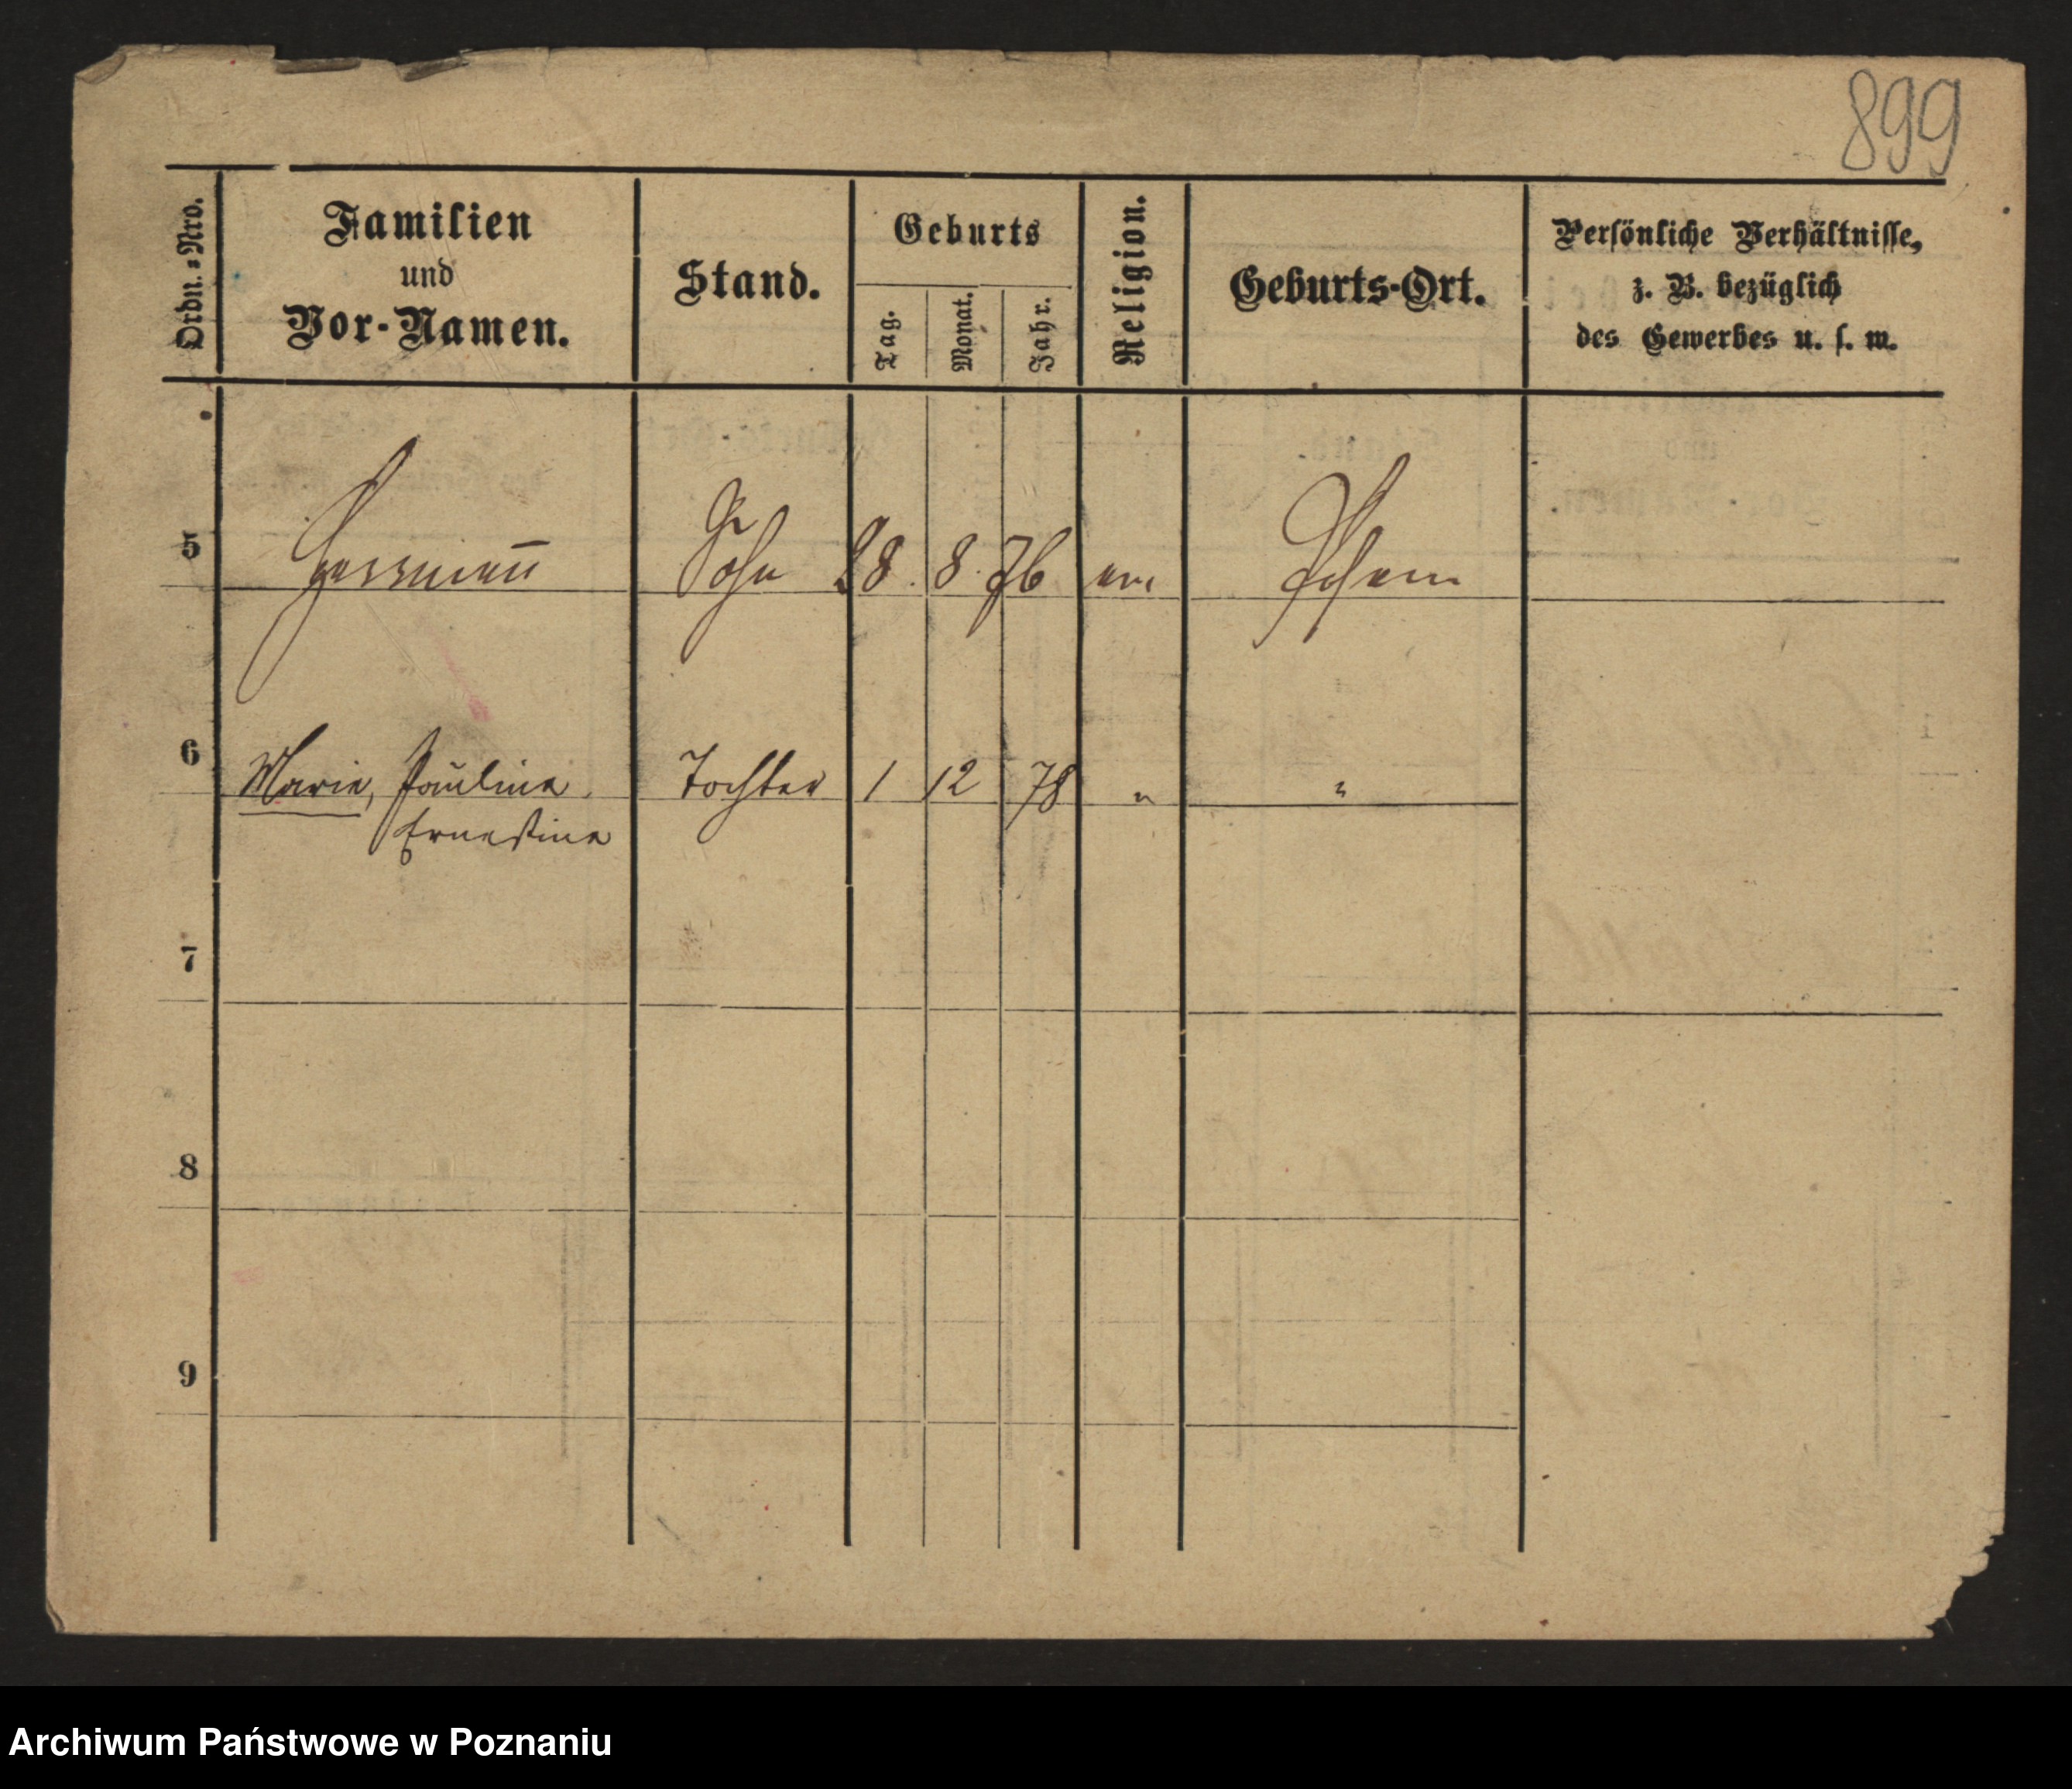 899
Ordn.=Nro.
Familien
und
Vor-Namen.
Stand.
Geburts
Tag.
Monat.
Jahr.
Religion.
Geburts-Ort.
Persönliche Verhältnisse,
z. B. bezüglich
des Gewerbes u. s. w.
5 Hermann Sohn 28. 8. 76
6 Marie, Pauline Tochter 1 12 78 " "
Ernestine
7
8
9
Archiwum Państwowe w Poznaniu